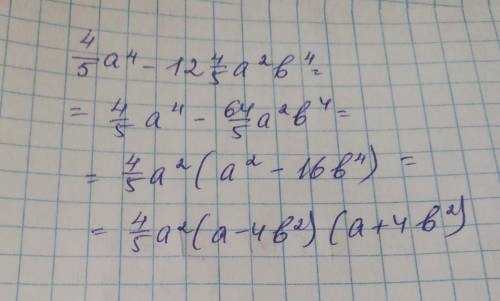 4/5 a⁴ - 12 4/5 a²b⁴ =
= 4/5 a⁴ - 64/5 a²b⁴ =
= 4/5 a² (a² - 16b⁴) =
= 4/5 a² (a - 4b²) (a + 4b²)